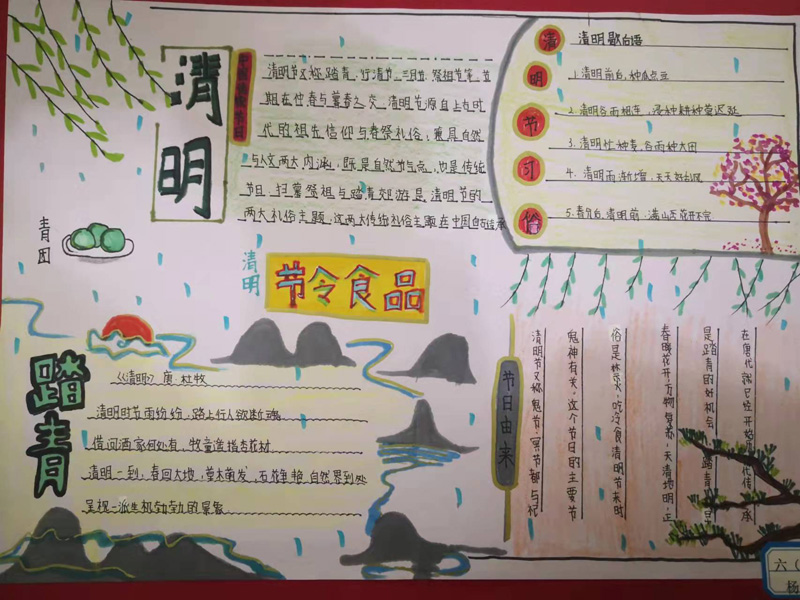 清明
中国传统节日
清明节又称踏青、行清节、三月节、祭祖节等，节
期在仲春与暮春之交。清明节源自上古时
代的祖先信仰与春祭礼俗，兼具自然
与人文两大内涵，既是自然节气点，也是传统
节日，扫墓祭祖与踏青郊游是清明节的
两大礼俗主题，这两大传统礼俗主题在中国自古传承
清明节习俗
清明歇台语
1.清明前后，种瓜点豆
2.清明谷雨相连，浸种耕种莫迟延
3.清明忙种麦，谷雨种大田
4.清明雨渐增，天天好刮风
5.清明前，满山杏花开不完
青团
清明
节令食品
踏青
《清明》唐·杜牧
清明时节雨纷纷，路上行人欲断魂
借问酒家何处有，牧童遥指杏花村
清明一到，春回大地，草木萌发，百花争艳，自然界到处
呈现一派生机勃勃的景象
节日由来
在唐代就已经开始
代传承
是踏青的好机会
踏青
早
春暖花开，万物复苏，天清地明，正
俗是林火，吃冷食清明节来时
鬼神有关，这个节日的主要节
清明节又称鬼节，冥节都与祀
六（
杨